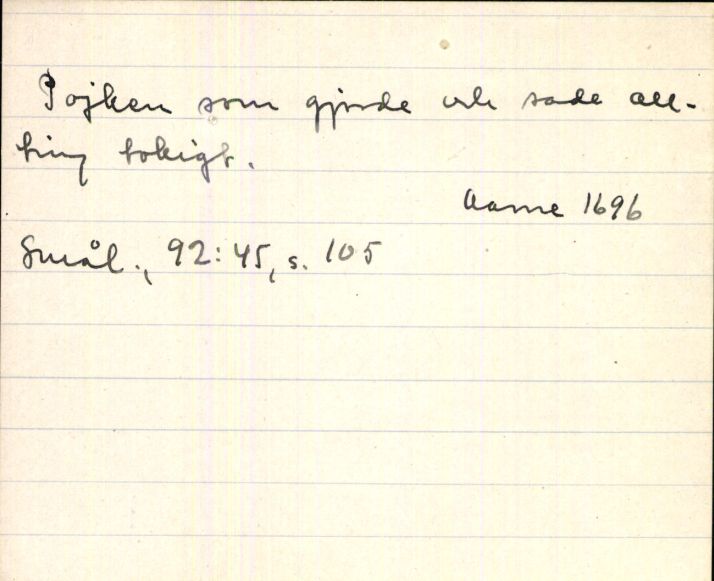 Pojken som gjorde och sade all-
ting tokigt.
Aarne 1696
Smål., 92:45, s. 105